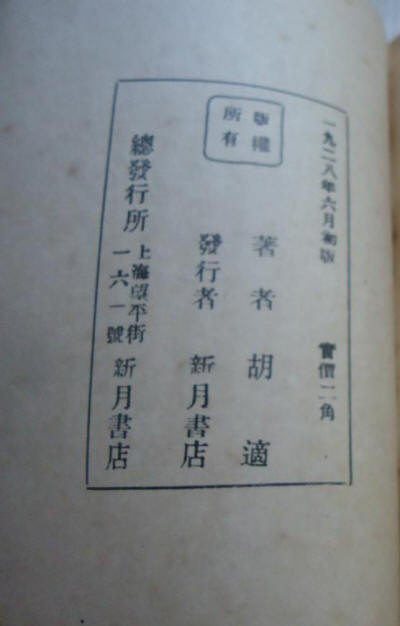 一九二八年六月初版　實價二角
版權
所有
著者　胡適
發行者　新月書店
總發行所　上海望平街一六一號　新月書店